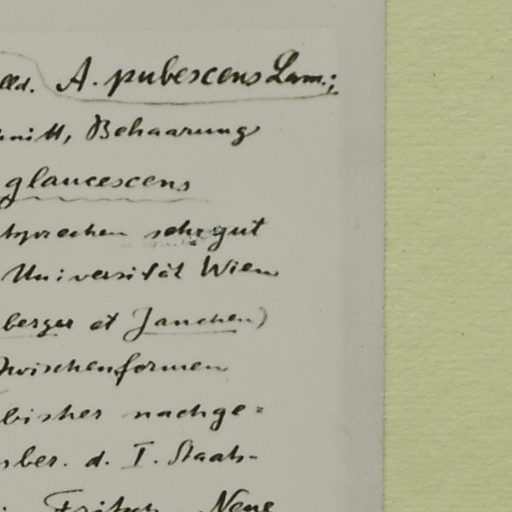 lld. A. pubescens Lam.;
hnitt, Behaarung
glaucescens
tsprechen sehr gut
Universität Wien
berger et Janchen)
Zwischenformen
bisher nachge=
sber. d. I. Staats-
Fritsch Neue